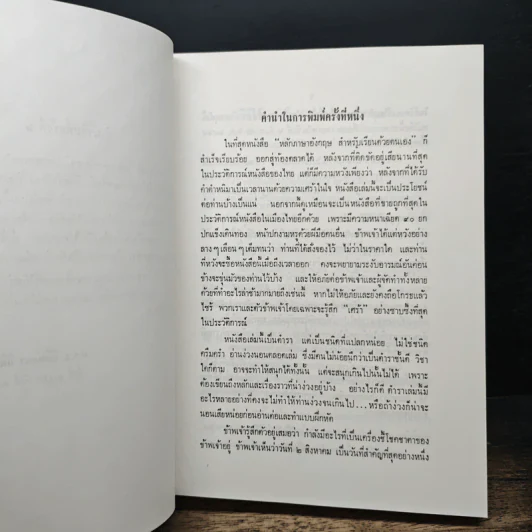 คำนำในการพิมพ์ครั้งที่หนึ่ง
ในที่สุดหนังสือ "หลักภาษาอังกฤษ สำหรับเรียนด้วยตนเอง" ก็
สำเร็จเรียบร้อย ออกสู่ท้องตลาดได้ หลังจากที่ติดขัดอยู่เสียนานที่สุด
ในประวัติการหนังสือของไทย แต่ก็มีความหวังเพียงว่า หลังจากที่ได้รับ
คำตำหนิมาเป็นเวลานานด้วยความเศร้าในใจ หนังสือเล่มนี้จะเป็นประโยชน์
ต่อท่านบ้างเป็นแน่ นอกจากนี้ดูเหมือนจะเป็นหนังสือที่ขายถูกที่สุดใน
ประวัติการณ์หนังสือในเมืองไทยอีกด้วย เพราะมีความหนาเฉียด ๙๐ ยก
ปกแข็งเดินทอง หน้าปกงามหรูด้วยฝีมือคนอื่น ข้าพเจ้าได้แต่หวังอย่าง
ลางๆเลือนๆเต็มทนว่า ท่านที่ได้สั่งจองไว้ ไม่ว่าในราคาใด และท่าน
ที่หวังจะซื้อหนังสือนี้เมื่อถึงเวลาออก คงจะพยายามระงับอารมณ์อันค่อน
ข้างจะขุ่นมัวของท่านไว้บ้าง และให้อภัยต่อข้าพเจ้าและผู้จัดทำทั้งหลาย
ด้วยที่ทำอะไรล่าช้ามากมายถึงเช่นนี้ หากไม่ให้อภัยและยังคงถือโกรธแล้ว
ไซร้ พวกเราและตัวข้าพเจ้าโดยเฉพาะจะรู้สึก "เศร้า" อย่างซาบซึ้งที่สุด
ในประวัติการณ์
หนังสือเล่มนี้เป็นตำรา แต่เป็นชนิดที่แปลกหน่อย ไม่ใช่ชนิด
ครึมคร่ำ อ่านง่วงนอนตลอดเล่ม ซึ่งมีคนไม่น้อยนึกว่าเป็นตำราชั้นดี วิชา
ใดก็ตาม อาจจะทำให้สนุกได้ทั้งนั้น แต่จะสนุกเกินไปนั้นไม่ได้ เพราะ
ต้องเขียนถึงหลักและเรื่องราวที่น่าง่วงอยู่บ้าง อย่างไรก็ดี ตำราเล่มนี้มี
อะไรหลายอย่างที่คงจะไม่ทำให้ท่านง่วงจนเกินไป...หรือถ้าง่วงก็น่าจะ
นอนเสียหน่อยก่อนอ่านต่อและทำแบบฝึกหัด
ข้าพเจ้ารู้สึกตัวอยู่เสมอว่า กำลังมีอะไรที่เป็นเครื่องชี้โชคชาตาของ
ข้าพเจ้าอยู่ ข้าพเจ้าเห็นว่าวันที่ ๒ สิงหาคม เป็นวันที่สำคัญที่สุดอย่างหนึ่ง